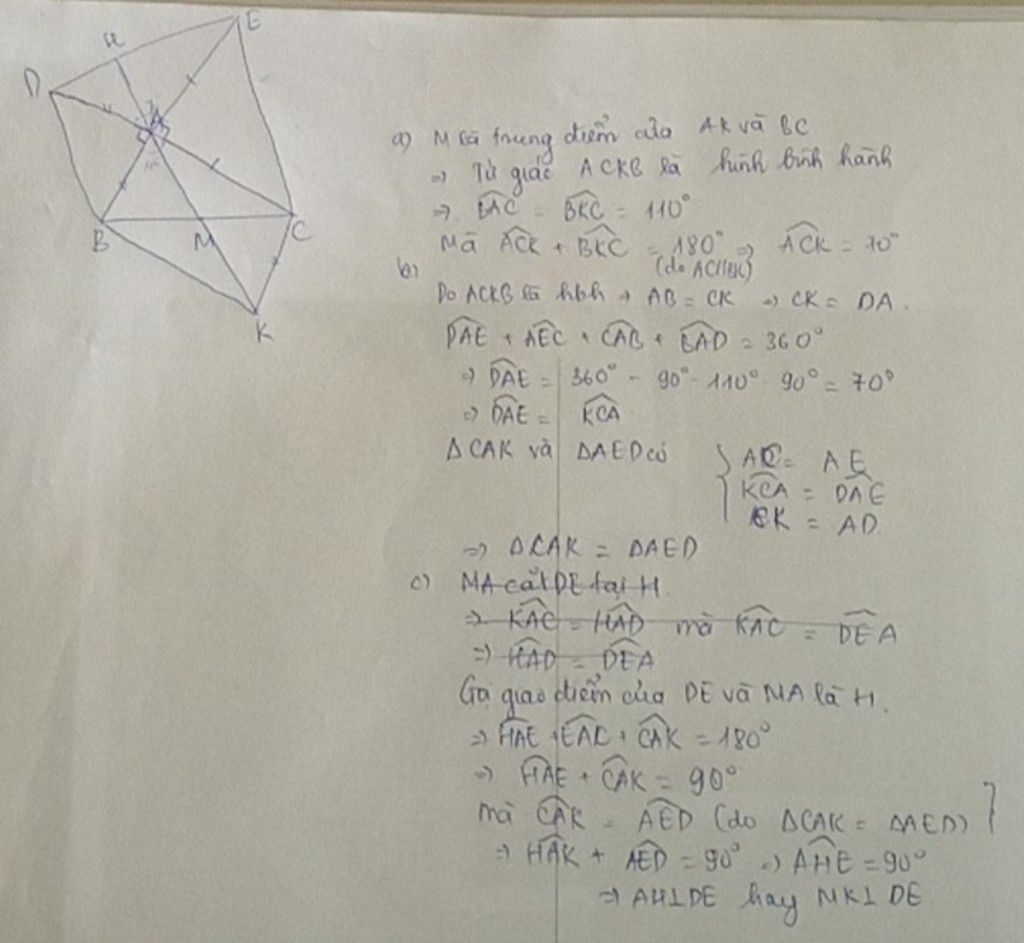 E
H
D
A
B
M
C
K
a) M là trung điểm của AK và BC
=> Tứ giác ACKB là hình bình hành
=> BAC = BKC = 110°
Mà ACK + BKC = 180° => ACK = 70°
(do AC//BK)
b)
Do ACKB là hbh → AB = CK => CK = DA.
DAE + AEC + CAB + BAD = 360°
=> DAE = 360° - 90° - 110° - 90° = 70°
=> DAE = KCA
ΔCAK và ΔAED có
AC = AE
KCA = DAE
CK = AD
=> ΔCAK = ΔAED
c) MA cắt DE tại H
=> KAC = HAD mà KAC = DEA
=> HAD = DEA
Gọi giao điểm của DE và MA là H.
=> HAE + EAC + CAK = 180°
=> HAE + CAK = 90°
mà CAK = AED (do ΔCAK = ΔAED)
=> HAK + AED = 90° => AHE = 90°
=> AH⊥DE hay MK⊥DE